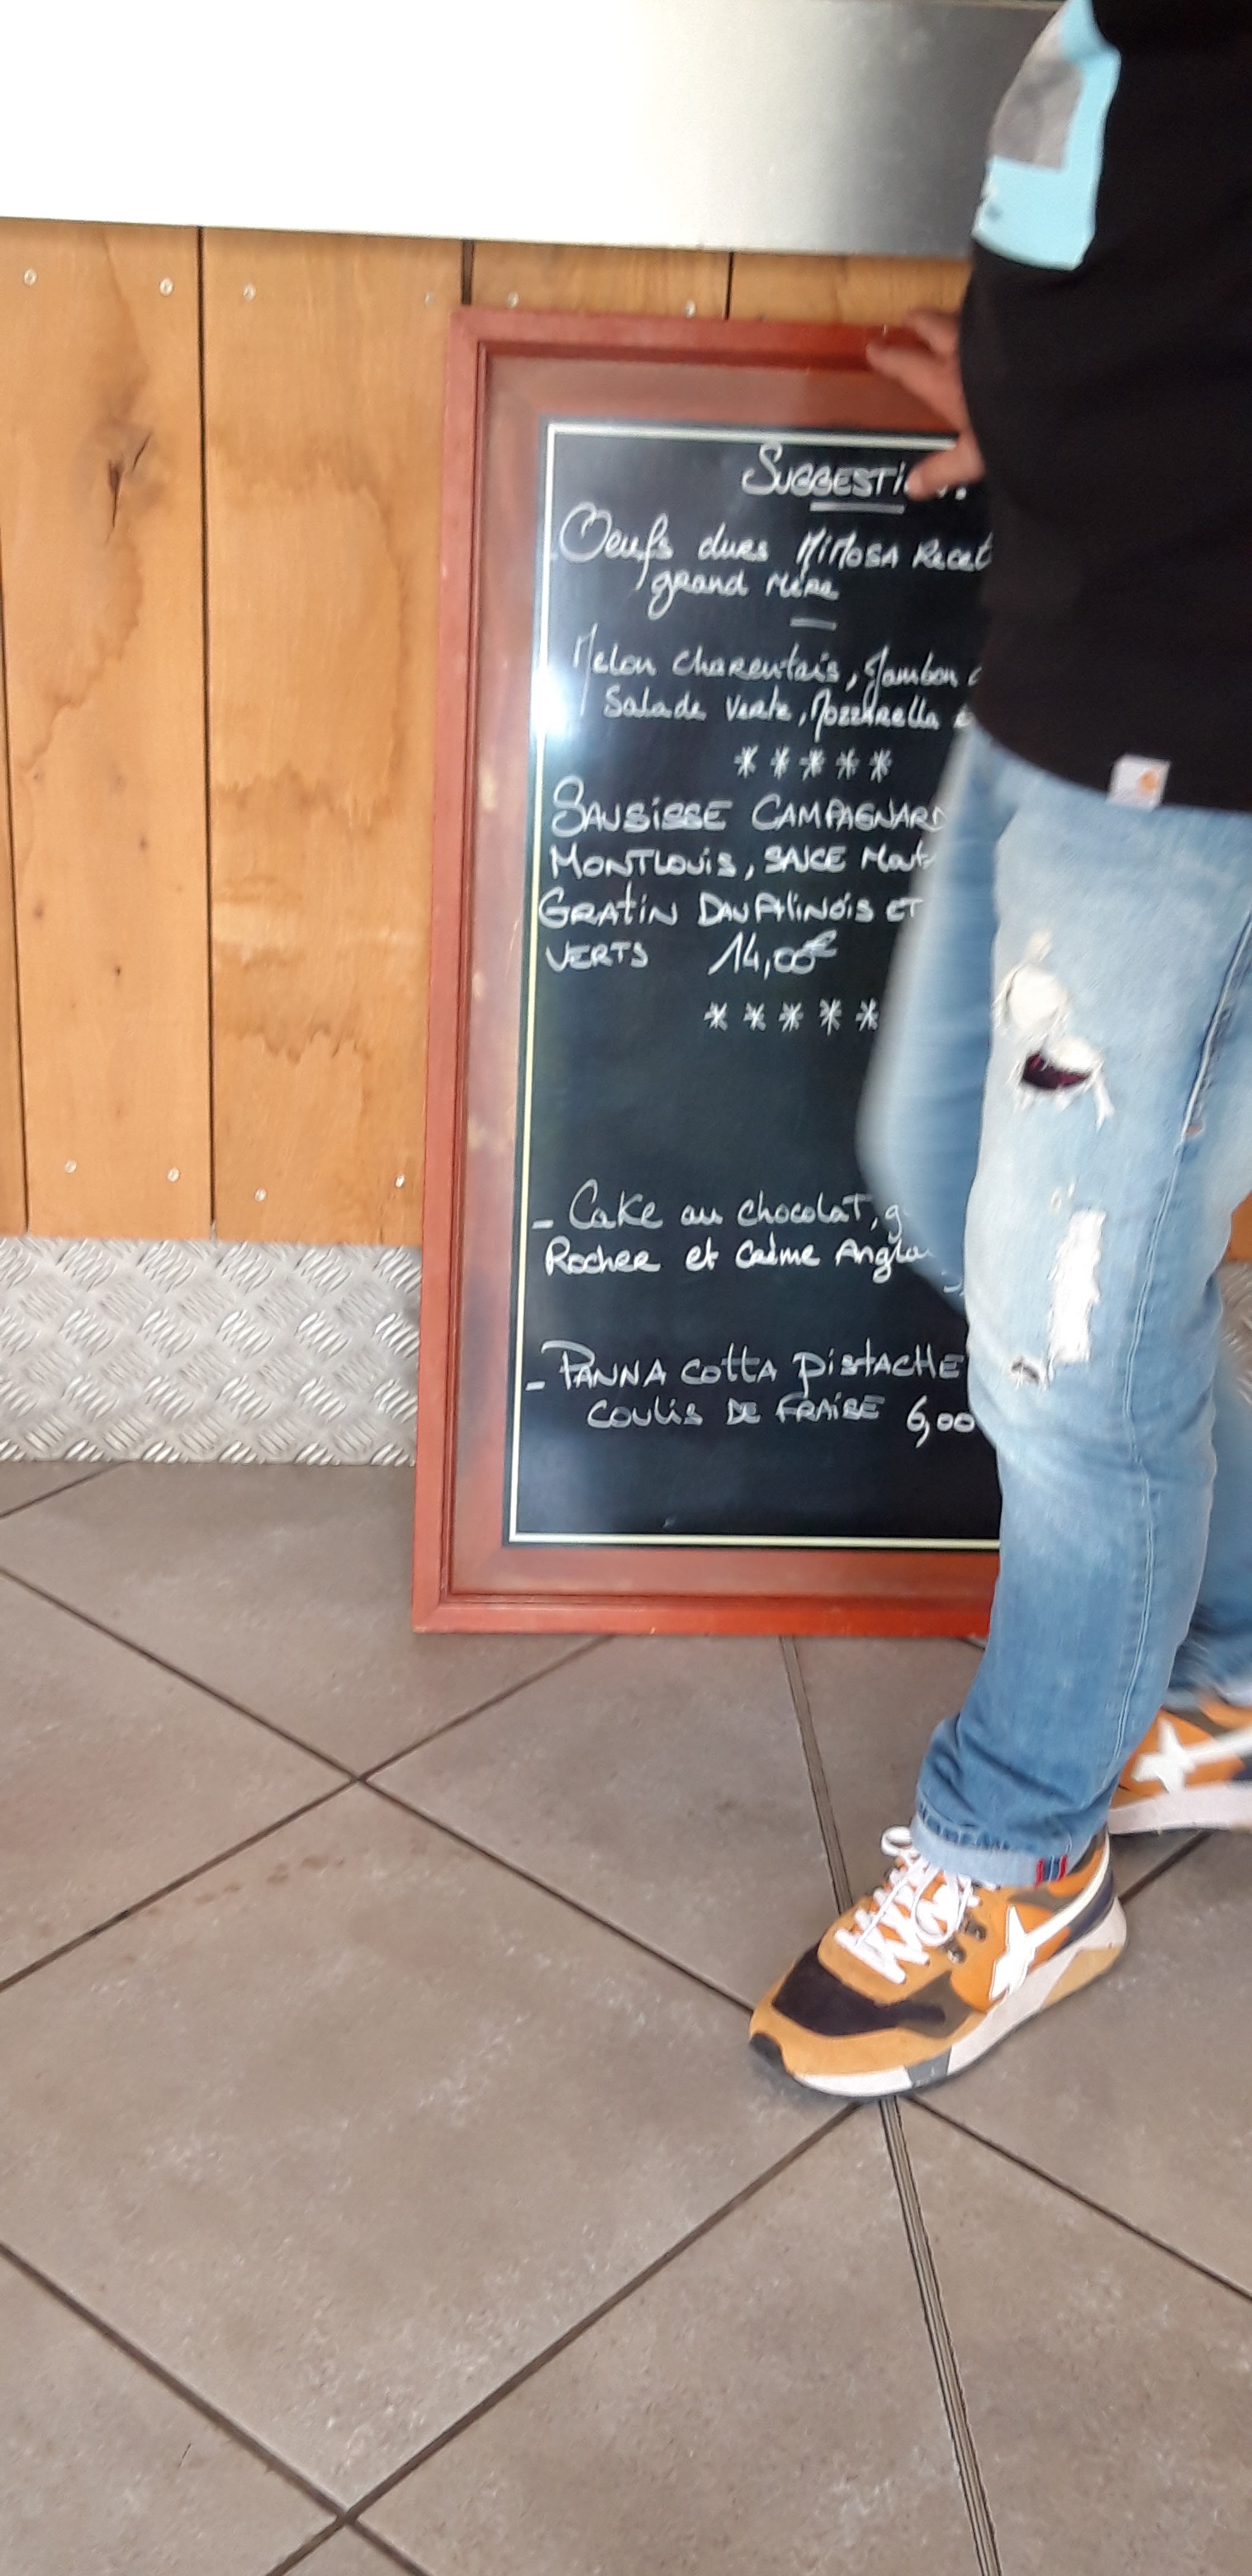 SUGGESTI
Oeufs durs MiMOSA Recet
grand Mère
Melon charentais, Jambon
Salade verte, Mozzarella
* * * * *
SAUSiSSE CAMPAGNARD
MONTLOUiS, SAUCE Mout
GRATiN DAUPHiNOiS ET
VERTS 14,00€
* * * * *
- Cake au chocolaT, g
Rocher et Crème Angla
- PANNA COTTA PiSTACHE
COULiS DE FRAiSE 6,00